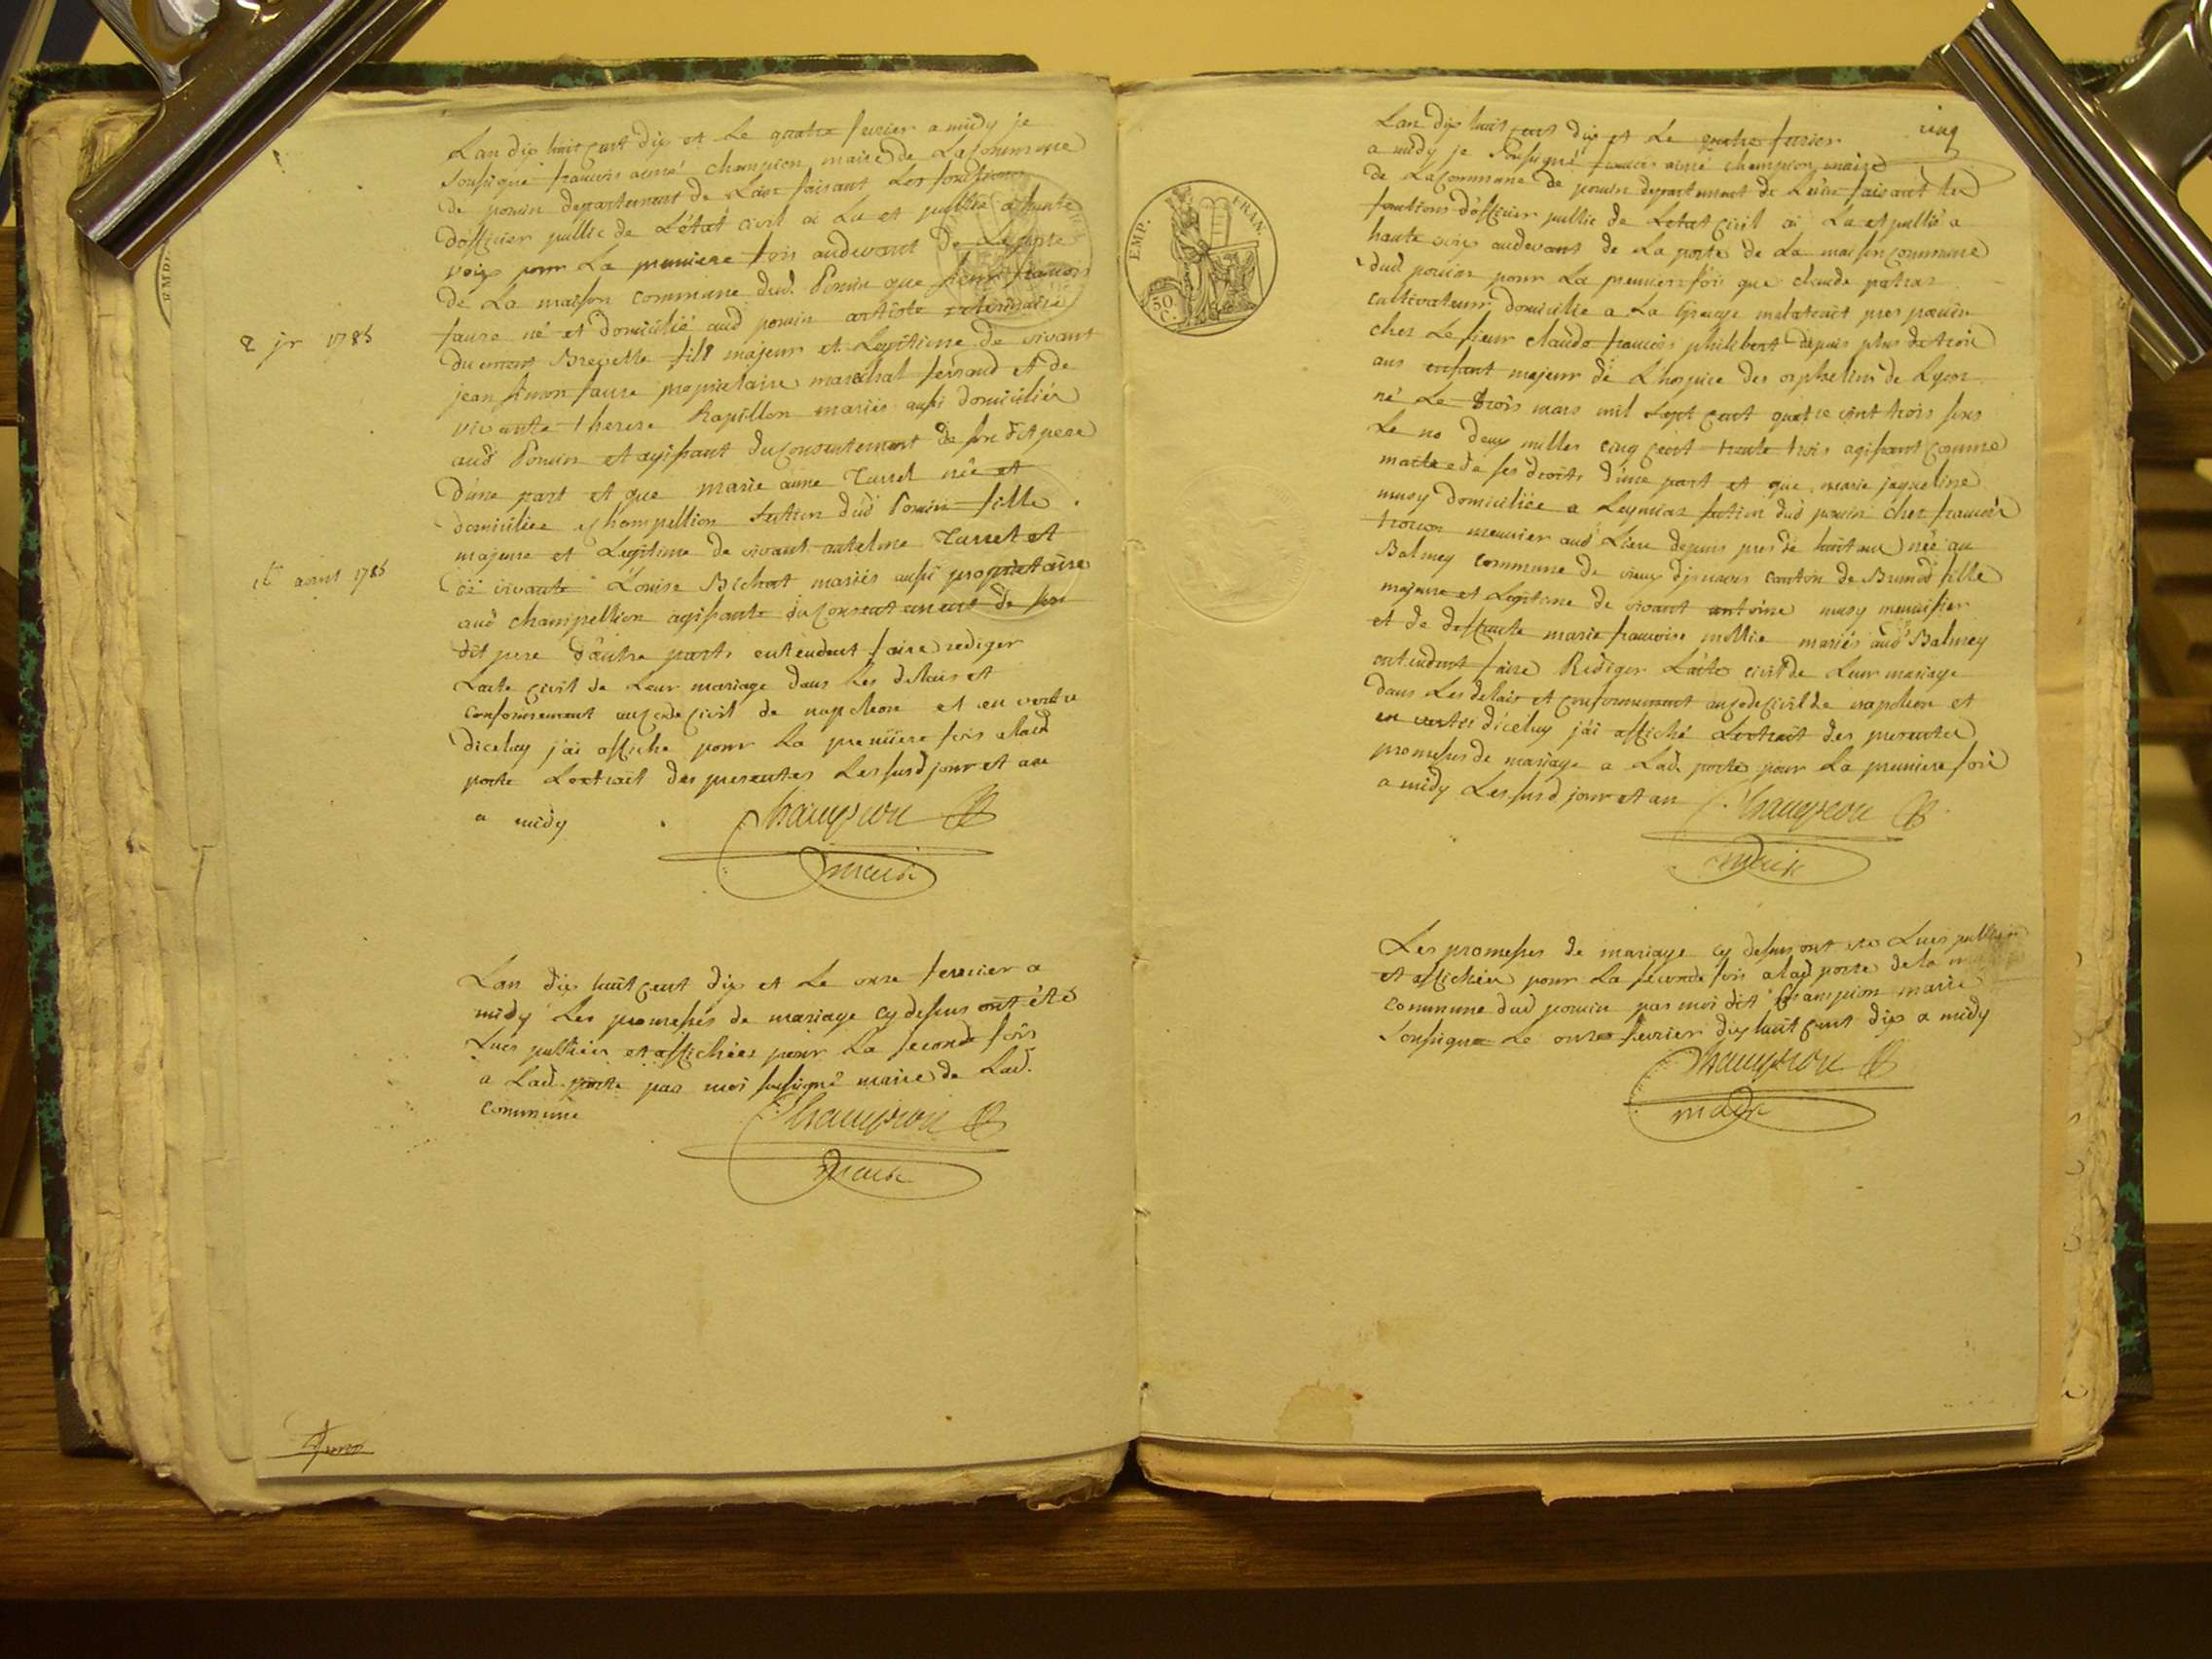 Lan dix huit cent dix et Le quatre fevrier a midy je
Soussigné francois aimé champion maire de La Commune
de poncin departement de Lain faisant Les fonctions
dofficier public de L'état civil ai Lu et publié a haute
voix pour La premiere fois audevant de La porte
de La maison commune dud. Poncin que francois
faure né et domicilié aud poncin artiste veterinaire
du ement Brevetté fils majeur et Legitime de vivant
jean simon faure proprietaire marechal ferrand et de
vivante therese Rapillon mariés aussi domiciliés
aud Poncin et agissant du Consentement de son dit pere
d'une part et que marie aime Turrel née et
domiciliee a champellion section dud Poncin fille
majeure et Legitime de vivant antelme Turrel et
de vivante Louise Bichat mariés aussi proprietaire
aud champellion agissante du Consentement de son
dit pere d'autre part, entendent faire rediger
Lacte civil de Leur mariage dans Les delais et
conformement au Code Civil de napoleon et en vertu
diceluy j'ai affiché pour La premiere fois a Lad
porte Lextrait des presentes Les susd jour et an
a midy Champion
maire
2 jr 1785
1er aout 1785
Lan dix huit cent dix et Le onze fevrier a
midy Les promesses de mariage cy dessus ont été
Lues publiées et affichées pour La seconde fois
a Lad. porte par moi soussigné maire de Lad.
commune Champion
maire
cinq
Lan dix huit cent dix et Le quatre fevrier
a midy je Soussigné francois aimé champion maire
de La Commune de poncin departement de Lain faisant les
fonctions d'officier public de Letat Civil ai Lu et publié a
haute voix audevant de La porte de La maison commune
dud poncin pour La premiere fois que claude patras
cultivateur domicilié a La Grange malatrait pres poncin
chez Le sieur claude francois philibert depuis plus de trois
ans enfant majeur de L'hospice des orphelins de Lyon
né Le trois mars mil sept cent quatre vint trois sous
Le no deux milles cinq cent trente trois agissant comme
maitre de ses droits d'une part et que marie jaqueline
musy domiciliée a Leymiat section dud poncin chez francois
meunier aud Lieu depuis pres de huit ans née au
Balmey commune de vieux d'jzenave canton de Brenod fille
majeure et Legitime de vivant antoine musy menuisier
et de deffuncte marie francoise mollie mariés aud Balmey
entendent faire Rediger Lacte civil de Leur mariage
dans Les delais et conformement au code civil de napoleon et
en vertu diceluy j'ai affiché Lextrait des presentes
promesses de mariage a Lad. porte pour La premiere fois
a midy Les susd jour et an Champion
maire
Les promesses de mariage cy dessus ont été Lues publiées
et affichées pour La seconde fois a Lad porte de la
commune dud poncin par moi dit Champion maire
Soussigné Le onze fevrier dix huit cent dix a midy
Champion
maire
EMP. FRAN.
50
C.